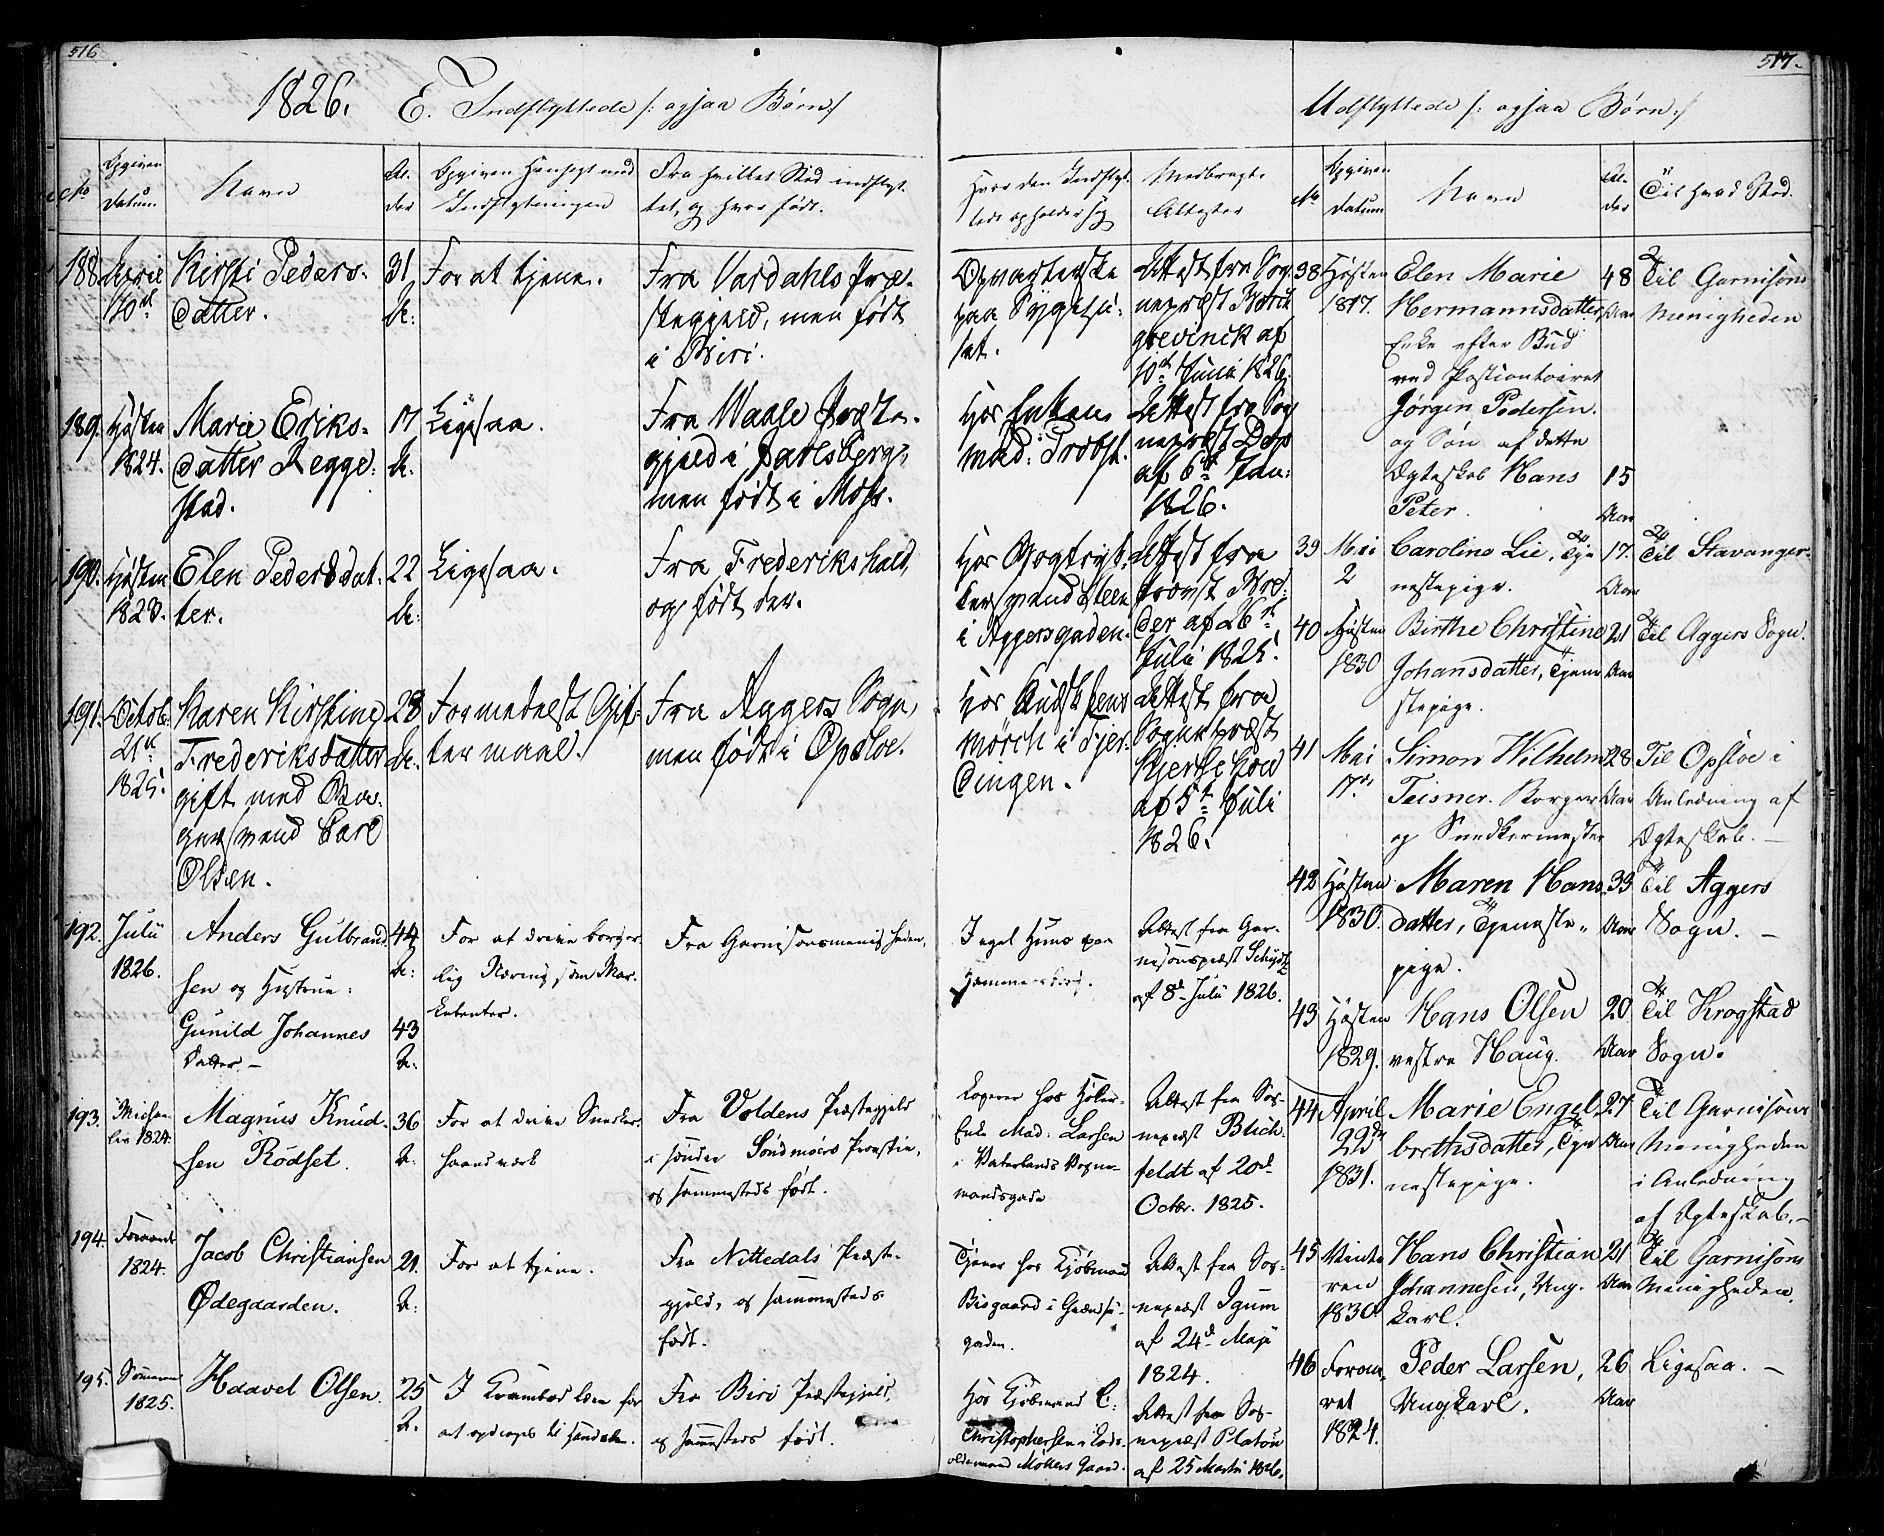 516
517.
1826. E. Indflyttede /: ogsaa Børn :/
Udflyttede /: ogsaa Børn :/
No
Opgiven
Datum
Navn
Al-
der
Opgiven Hensigt med
Indflytningen
Fra hvilket Sted indflyt-
tet, og hvor født.
Hvor den Indflyt-
tede opholder sig
Medbragte
Attester
No
Opgiven
Datum
Navn
Al-
der
Til hvad Sted.
188.
April
10de
Kirsti Peders-
datter.
31
A:
For at tjene.
Fra Vardahls Præ-
stegjeld, men født
i Biri.
Opvarterske
paa Sygehu-
set.
Attest fra Sog-
nepræst
af
10de Junii 1826.
189.
Høsten
1824.
Marie Eriks-
datter Regge-
stad.
17
A.
Ligesaa.
Fra Waale Præste-
gjeld i Jarlsberg,
men født i Moss.
Hos Enken
Mad: Probst.
Attest fra Sog-
nepræst Dop
af 6te Jan:
1826.
190.
Høsten
1823.
Elen Pedersdat-
ter.
22
A:
Ligesaa.
Fra Frederikshald,
og født der.
Hos Bogtryk-
ker Steen
i Aggersgaden.
Attest fra
Provst
af 26de
Julii 1825.
191.
Octob.
21de
1825.
Karen Kirstine
Frederiksdatter
gift med Bor-
gersvend Carl
Olsen.
28
A.
Formedelst Gif-
termaal.
Fra Aggers Sogn,
men født i Opsloe.
Hos Jens
Mørch i Fjer-
dingen.
Attest fra
Sognepræst
Kjerschow
af 5te Juli
1826.
192.
Julii
1826.
Anders Gulbrand-
sen og Hustrue:
Gunild Johannes
Datter -
44
A:
43
A:
For at drive borger-
lig Næring, som Mar-
ketenter.
Fra Garnisonsmenigheden.
I eget Huus paa
Hammersborg.
Attest fra Gar-
nisonspræst Schydtz
af 8de Julii 1826.
193.
Michae-
lii 1824.
Magnus Knud-
sen Rødset.
36
A.
For at drive Snedker-
haandværk
Fra Voldens Præstegjeld
i søndre Søndmørs Provstie,
og sammesteds født.
Logerer hos
Enke Mad: Larsen
i Vaterlands Vogn-
mandsgade
Attest fra Sog-
nepræst Blich-
feldt af 20de
Octbr. 1825.
194.
Foraaret
1824.
Jacob Christiansen
Ødegaarden.
21.
A:
For at tjene.
Fra Nittedals Præste-
gjeld, og sammesteds
født.
Tjener hos Kjøbmand
Bisgaard i Grændse-
gaden.
Attest fra Sog-
nepræst Igum
af 24de Maji
1824.
195.
Sommeren
1825.
Haavel Olsen.
25
A.
I Krambodlære for
at opdrages til Handelen.
Fra Biri Præstegjeld,
og sammesteds født.
Hos Kjøbmand C:
Christophersen i
Møllers Gaard.
Attest fra Sog-
nepræst Platou
af 25 Martii 1826.
38
Høsten
1817.
Elen Marie
Hermannsdatter
Enke efter Bud
ved Postcontoiret
Jørgen Pedersen.
og Søn af dette
Ægteskab Hans
Peter.
48
Aar
15
Aar
Til Garnisons
Menigheden
39
Mai
2
Caroline Lie, Tje-
nestepige.
17.
Aar
Til Stavanger.
40
Høsten
1830
Birthe Christine
Johansdatter, Tjene-
stepige.
21
Aar
Til Aggers Sogn.
41
Mai
17de
Simon Wilhelm
Teisner. Borger
og Snedkermester
28
Aar
Til Opsloe i
Anledning af
Ægteskab. -
42
Høsten
1830.
Maren Hans-
datter, Tjeneste-
pige.
33
Aar
Til Aggers
Sogn. -
43
Høsten
1829.
Hans Olsen
vestre Haug.
20.
Aar
Til Krogstad
Sogn.
44
April
22de
1831.
Marie Engel-
brethsdatter, Tje-
nestepige.
27
Aar
Til Garnisons
Menigheden
i Anledning
af Ægteskab. -
45
Vinte-
ren
1830
Hans Christian
Johannesen, Ung-
karl.
21
Aar
Til Garnisons
Menigheden.
46
Foraa-
ret
1824.
Peder Larsen,
Ungkarl.
26
Aar
Ligesaa. -